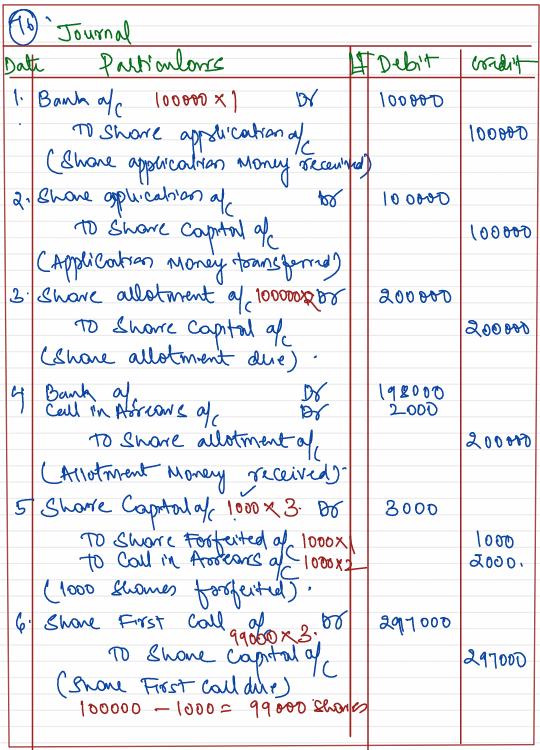 76
Journal
Date Particulars lf Debit credit
1. Bank a/c 100000 × 1 Dr 100000
To Share application a/c 100000
(Share application Money received)
2. Share application a/c Dr 100000
To Share Capital a/c 100000
(Application Money transferred)
3. Share allotment a/c 100000×2 Dr 200000
To Share Capital a/c 200000
(Share allotment due).
4 Bank a/c Dr 198000
Call in Arrears a/c Dr 2000
To Share allotment a/c 200000
(Allotment Money received).
5 Share Capital a/c 1000 × 3. Dr 3000
To Share Forfeited a/c 1000×1 1000
To Call in Arrears a/c 1000×2 2000.
(1000 Shares forfeited).
6. Share First Call a/c Dr 297000
99000 × 3.
To Share Capital a/c 297000
(Share First call due)
100000 - 1000 = 99000 shares